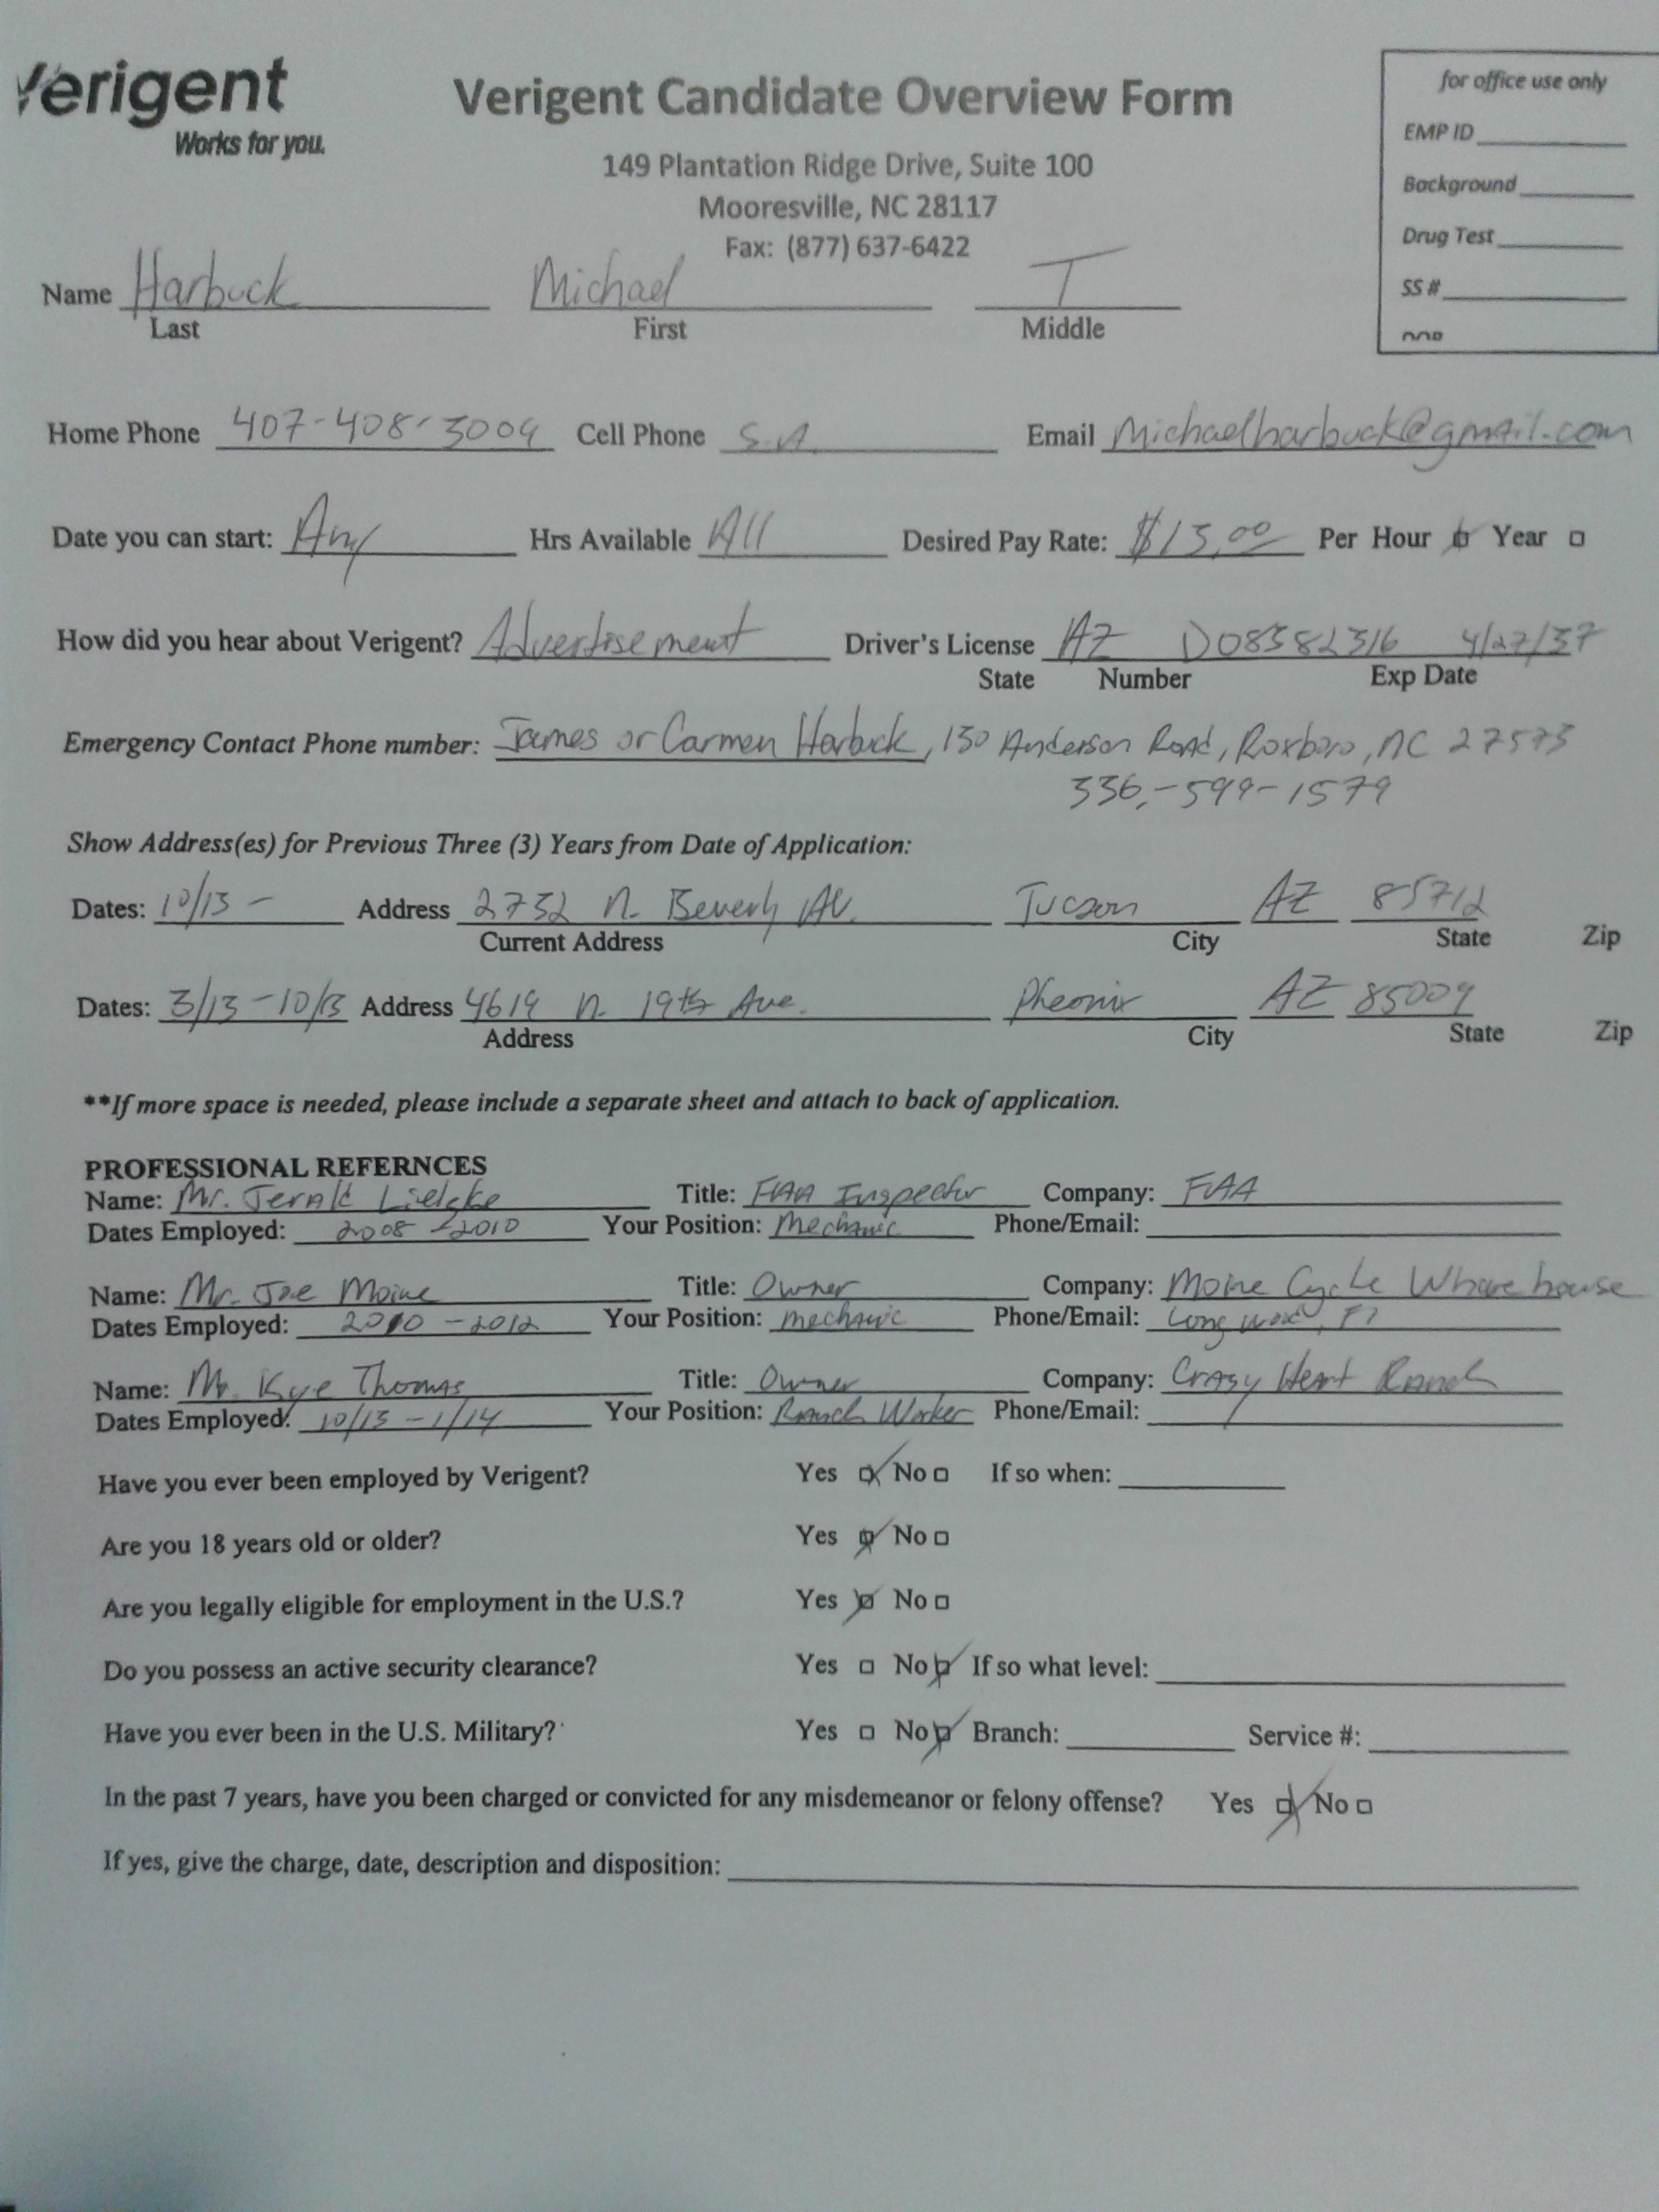 Verigent
Works for you.
Verigent Candidate Overview Form
149 Plantation Ridge Drive, Suite 100
Mooresville, NC 28117
Fax: (877) 637-6422
for office use only
EMP ID
Background
Drug Test
SS #
Name Harbuck Michael T
Last First Middle
Home Phone 407-408-3009 Cell Phone S.A. Email Michaelharbuck@gmail.com
Date you can start: Any Hrs Available All Desired Pay Rate: $15.00 Per Hour Year
How did you hear about Verigent? Advertisement Driver's License AZ D08582316 4/27/37
State Number Exp Date
Emergency Contact Phone number: James or Carmen Harbuck, 130 Anderson Road, Roxboro, NC 27573
336-599-1579
Show Address(es) for Previous Three (3) Years from Date of Application:
Dates: 10/13 - Address 2732 N. Beverly AV. Tucson AZ 85712
Current Address City State Zip
Dates: 3/13 - 10/13 Address 4619 N. 19th Ave. Pheonix AZ 85009
Address City State Zip
**If more space is needed, please include a separate sheet and attach to back of application.
PROFESSIONAL REFERNCES
Name: Mr. Title: FAA Inspector Company: FAA
Dates Employed: 2008 - 2010 Your Position: Mechanic Phone/Email:
Name: Mr. Joe Moine Title: Owner Company: Moine Cycle Wharehouse
Dates Employed: 2010 - 2012 Your Position: mechanic Phone/Email: Longwood, Fl
Name: Mr. Kye Thomas Title: Owner Company: Crazy Heart Ranch
Dates Employed: 10/13 - 1/14 Your Position: Ranch Worker Phone/Email:
Have you ever been employed by Verigent? Yes No If so when:
Are you 18 years old or older? Yes No
Are you legally eligible for employment in the U.S.? Yes No
Do you possess an active security clearance? Yes No If so what level:
Have you ever been in the U.S. Military? Yes No Branch: Service #:
In the past 7 years, have you been charged or convicted for any misdemeanor or felony offense? Yes No
If yes, give the charge, date, description and disposition: